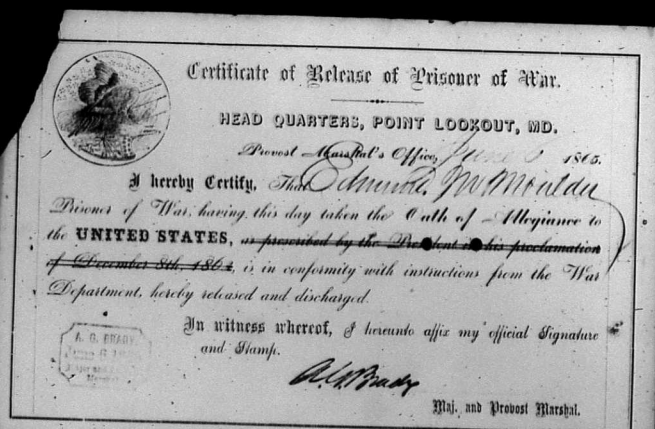 Certificate of Release of Prisoner of War.
HEAD QUARTERS, POINT LOOKOUT, MD.
Provost Marshal's Office, June 6 1865.
I hereby Certify, That Edmund W Moulder
Prisoner of War, having this day taken the Oath of Allegiance to
the UNITED STATES, as prescribed by the President in his proclamation
of December 8th, 1863, is in conformity with instructions from the War
Department, hereby released and discharged.
In witness whereof, I hereunto affix my official Signature
and Stamp.
A. G. BRADY
June 6
Major and
Marshal
A. G. Brady
Maj. and Provost Marshal.